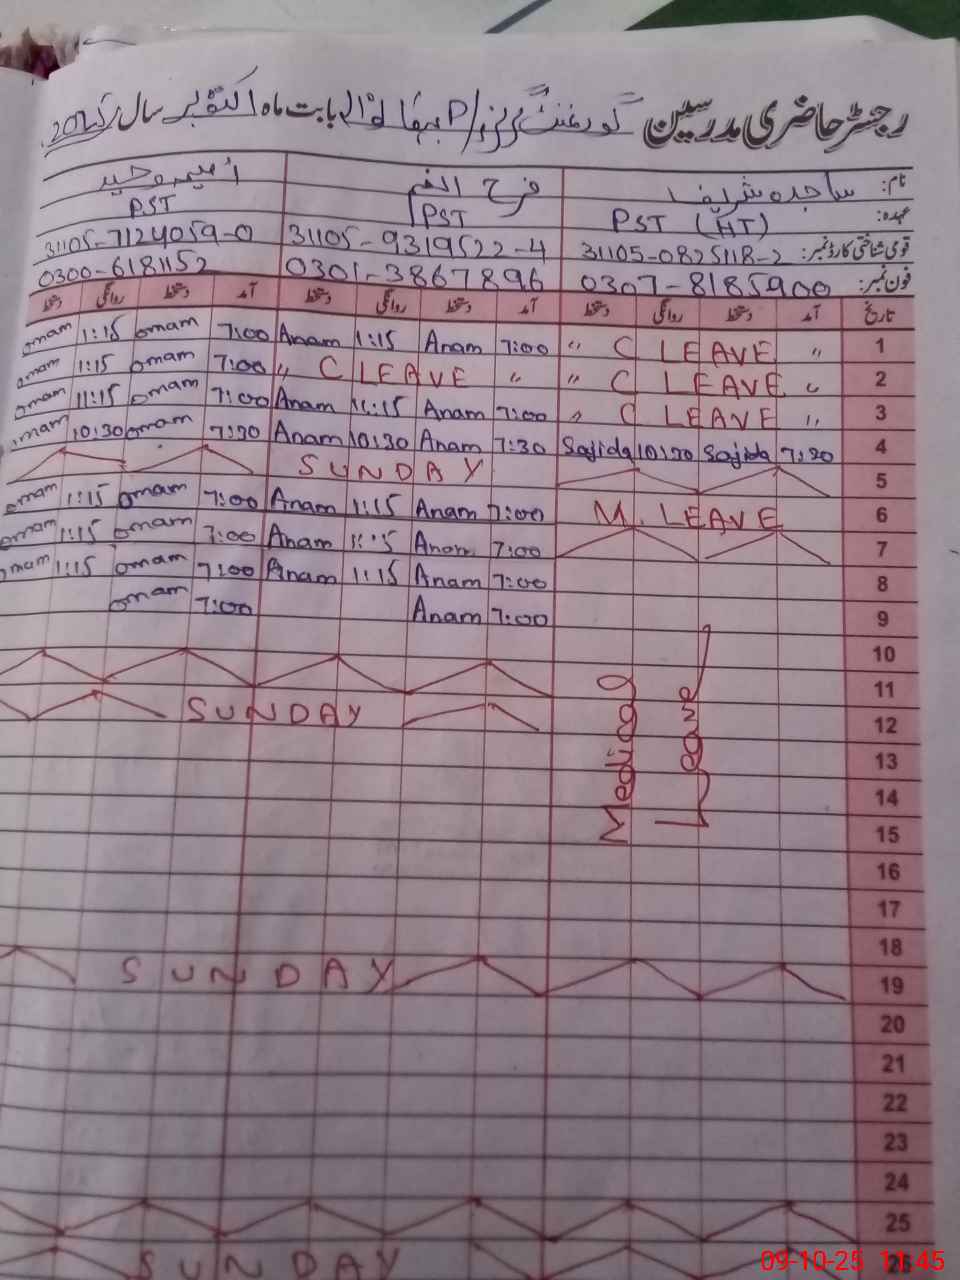 رجسٹر حاضری مدرسین گورنمنٹ گرلز P/ بابت ماہ اکتوبر سال
نام: ساجدہ شریف فرح
عہدہ: PST (HT) PST PST
قومی شناختی کارڈ نمبر: 31105-0825118-2 31105-9319522-4 31105-7124059-0
فون نمبر: 0307-8185900 0301-3867896 0300-6181152
تاریخ آمد دستخط روانگی دستخط آمد دستخط روانگی دستخط آمد دستخط روانگی دستخط
1 " C LEAVE " 7:00 Anam 1:15 Anam 7:00 omam 1:15 omam
2 " C LEAVE " " C LEAVE " 7:00 omam 1:15 omam
3 " C LEAVE " 7:00 Anam 11:15 Anam 7:00 omam 11:15 omam
4 7:30 Sajida 10:30 Sajida 7:30 Anam 10:30 Anam 7:30 omam 10:30 omam
5 SUNDAY
6 M. LEAVE 7:00 Anam 1:15 Anam 7:00 omam 1:15 omam
7 7:00 Anam 1:15 Anam 7:00 omam 1:15 omam
8 7:00 Anam 1:15 Anam 7:00 omam 1:15 omam
9 7:00 Anam 7:00 omam
10
11
12 SUNDAY
13
14
15
Leave
16
17
18
19 SUNDAY
20
21
22
23
24
25
26 SUNDAY
09-10-25 11:45